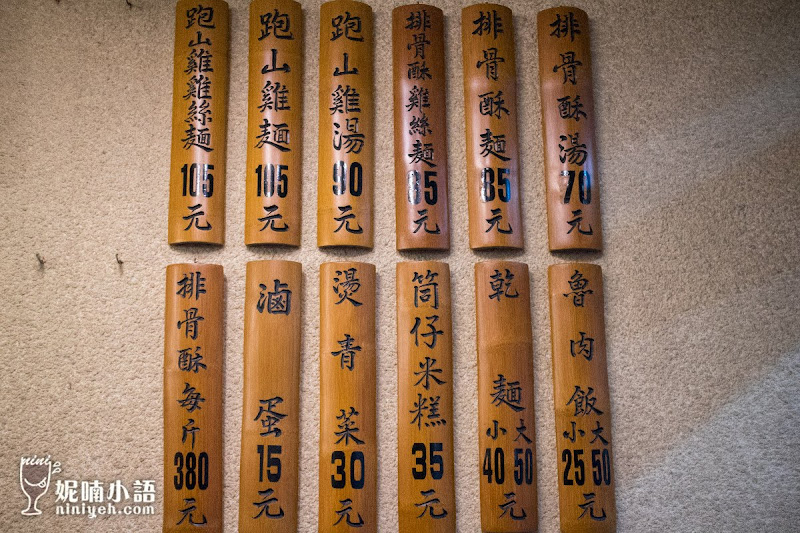 排骨酥湯70元
排骨酥麵85元
排骨酥雞絲麵85元
跑山雞湯90元
跑山雞麵105元
跑山雞雞絲麵105元
魯肉飯小25大50元
乾麵小40大50元
筒仔米糕35元
燙青菜30元
滷蛋15元
排骨酥每斤380元
nini
妮喃小語
niniyeh.com